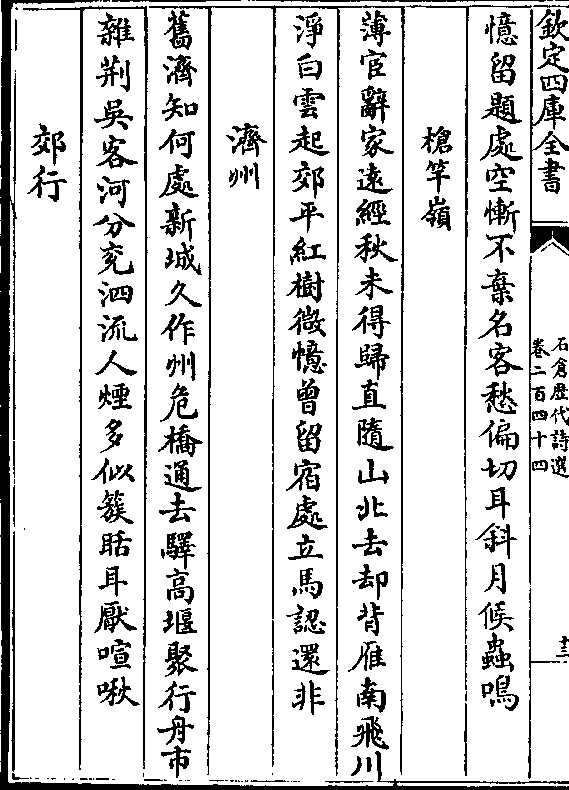 欽定四庫全書
石倉歴代詩選
卷二百四十四
十三
憶留題處空慚不棄名客愁偏切耳斜月候蟲鳴
槍竿嶺
薄宦辭家遠經秋未得歸直隨山北去却背雁南飛川
淨白雲起郊平紅樹微憶曾留宿處立馬認還非
濟州
舊濟知何處新城久作州危橋通去驛高堰聚行舟市
雜荆吳客河分兖泗流人煙多似簇聒耳厭喧啾
郊行